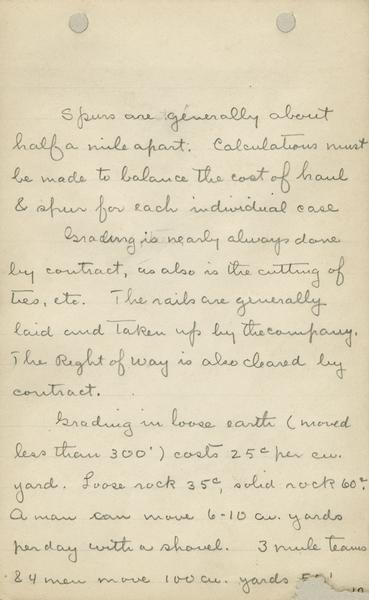 Spurs are generally about
half a mile apart. Calculations must
be made to balance the cost of haul
& spur for each individual case
Grading is nearly always done
by contract, as also is the cutting of
ties, etc. The rails are generally
laid and taken up by the company.
The Right of Way is also cleared by
contract.
Grading in loose earth (moved
less than 300') costs 25c per cu.
yard. Loose rock 35c, solid rock 60c.
A man can move 6-10 cu. yards
per day with a shovel. 3 mule teams
& 4 men move 100 cu. yards